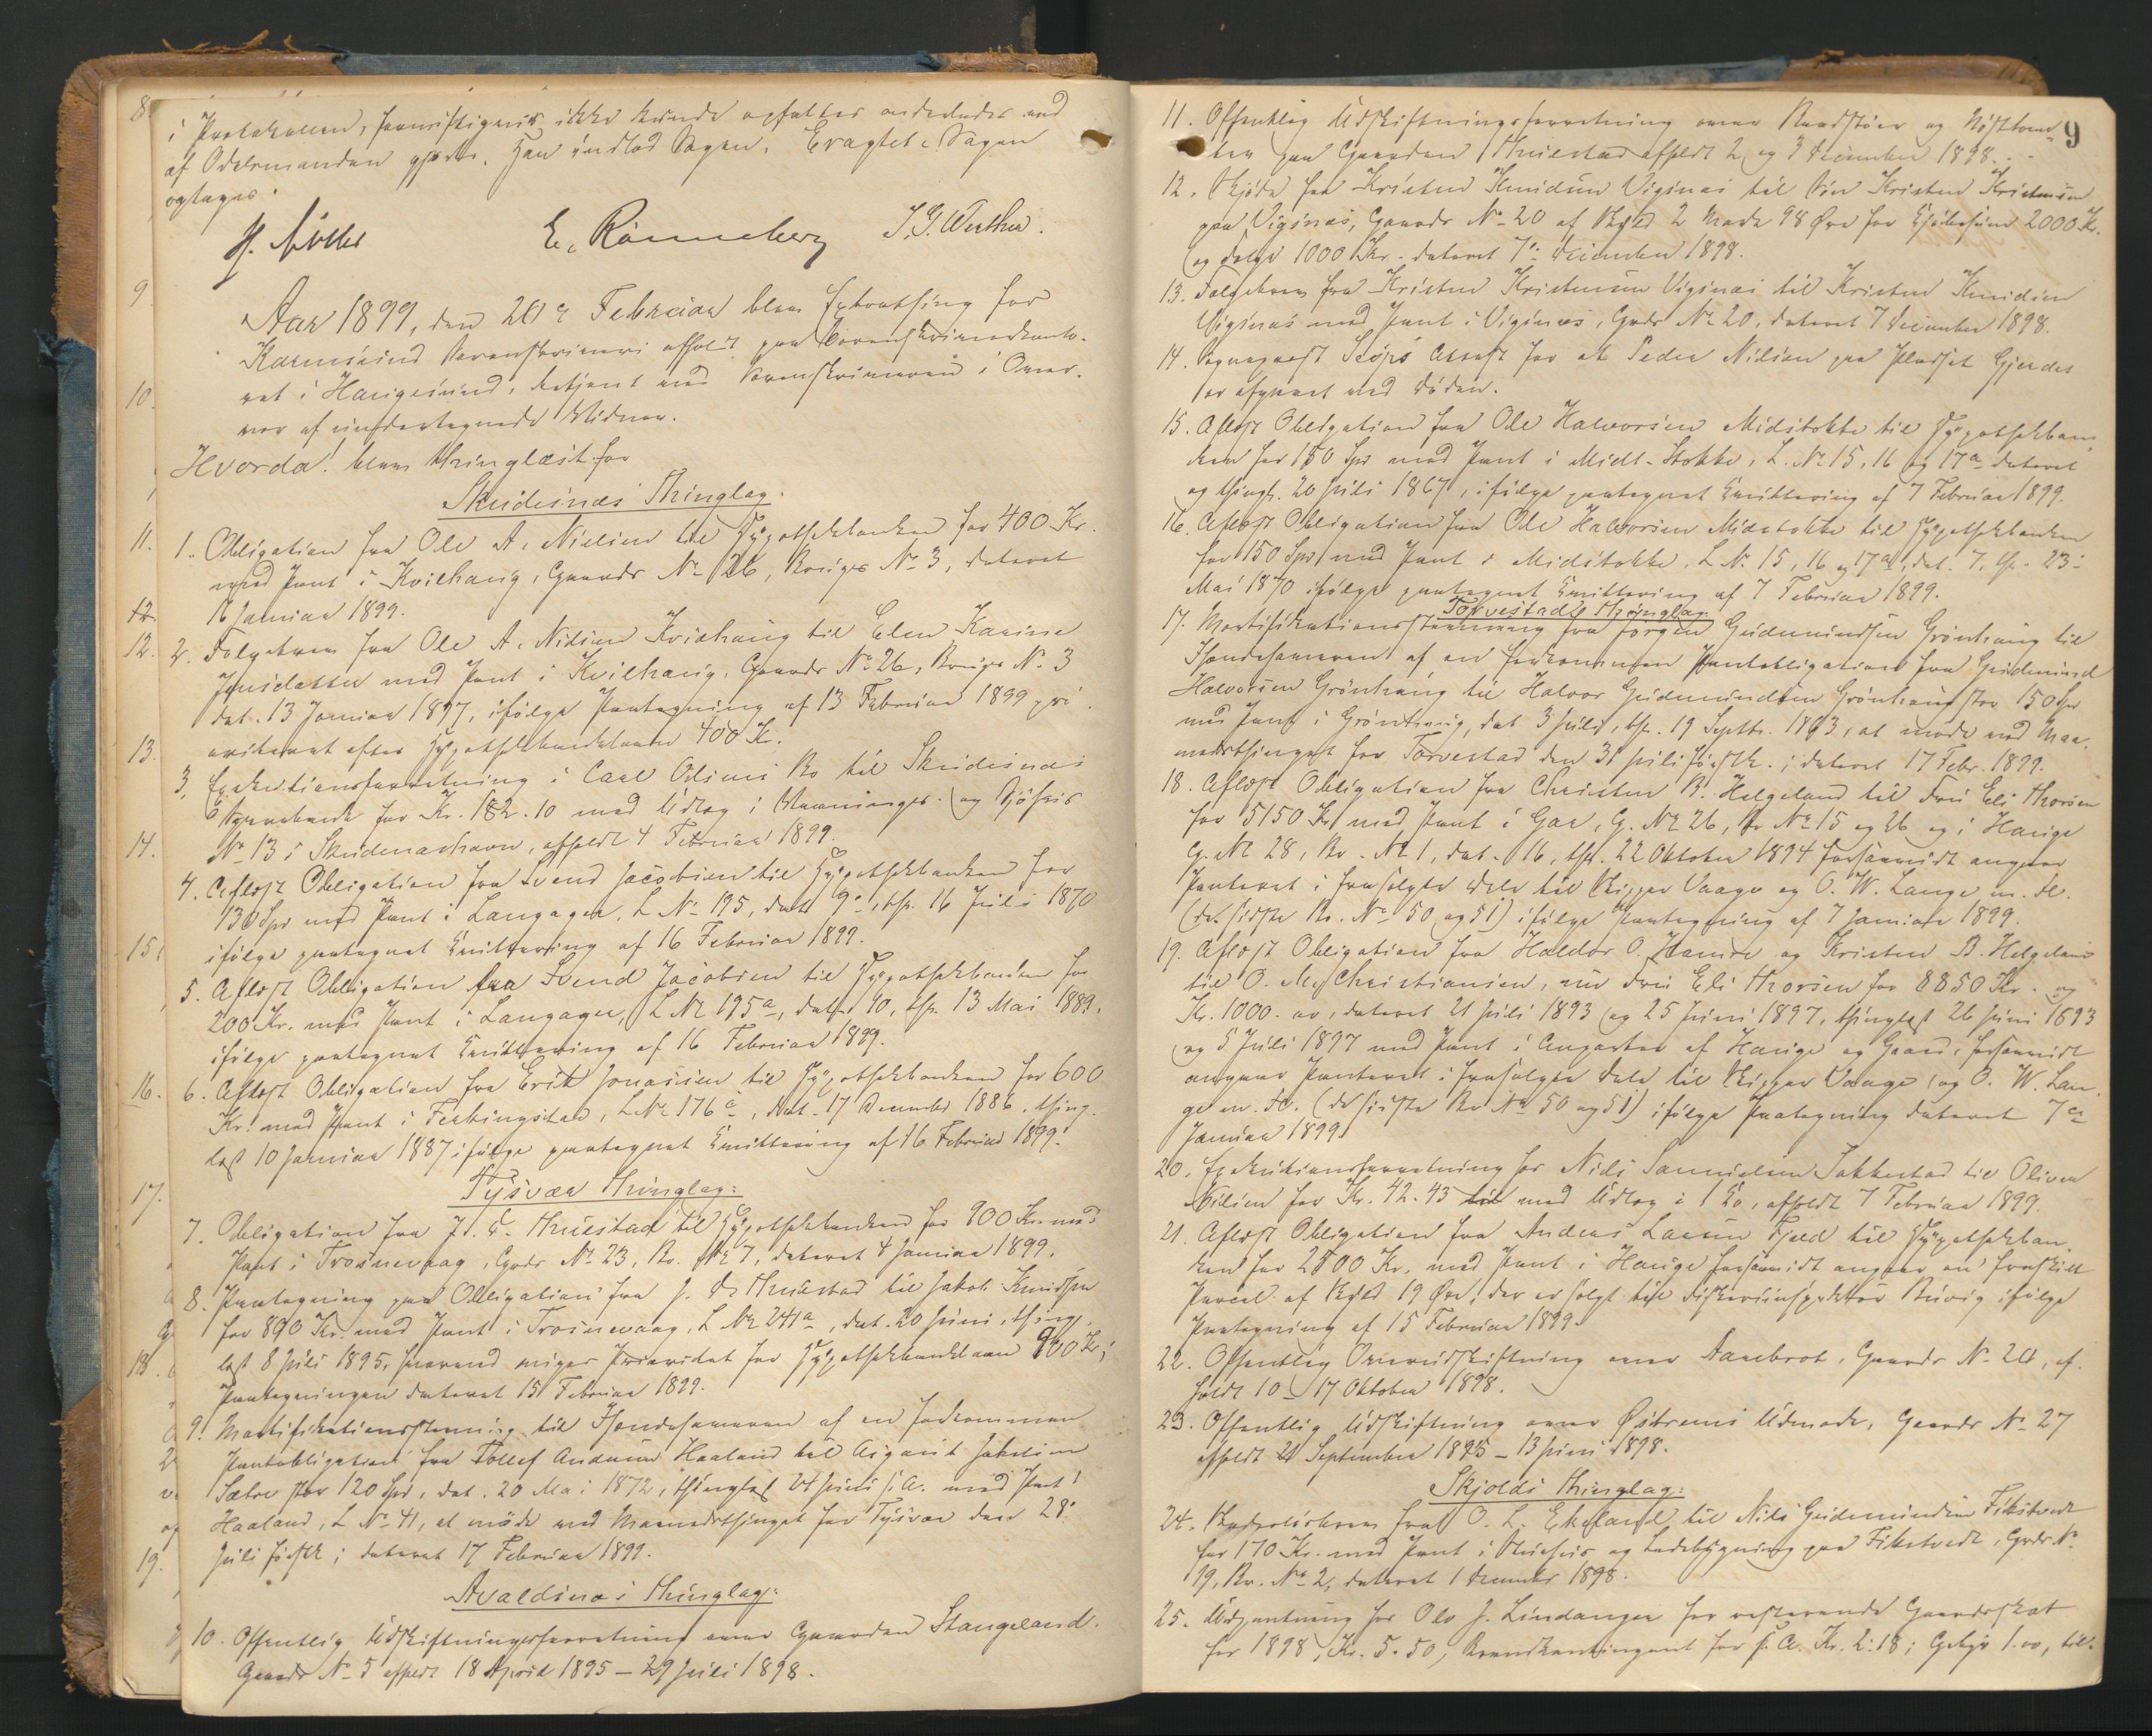 i Protokollen, ikke kunde opfattes anderledes end
af Odelsmanden gjort. Han indlod Sagen. Eragtet: Sagen
optages.
E. Rønneberg
Aar 1899, den 20de Februar blev Extrathing for
Karmsund Sorenskriveri afholdt paa Sorenskriverkonto-
ret i Haugesund, betjent ved Sorenskriveren i Overvær
af undertegnede Vidner.
Hvorda! blev thinglæst for
Skudesnæs Thinglag.
1. Obligation fra Ole A. Nielsen til Hypothekbanken for 400 Kr.
med Pant i Kvilhaug, Gaards No 26, Brugs No 3, dateret
16 Januar 1899.
2. Følgebrev fra Ole A. Nilsen Kvilhaug til Elen Karine
Jensdatter med Pant i Kvilhaug, Gaards No 26, Brugs No 3
dat. 13 Januar 1897, ifølge Paategning af 13 Februar 1899 pri-
oriteret efter Hypothekbanklaan 400 Kr.
3. Exekutionsforretning i Carl Bo til Skudesnæs
Sparebank for Kr. 182.10 med Udlæg i Vaaningen og Søhus
No 13 i Skudeneshavn, afholdt 4 Februar 1899.
4. Aflyst Obligation fra Svend Jacobsen til Hypothekbanken for
130 Spd med Pant i Langager, L No 195, dat. 9, thl. 16 Juli 1870
ifølge paategnet Kvittering af 16 Februar 1899.
5. Aflyst Obligation fra Svend Jacobsen til Hypothekbanken for
200 Kr. med Pant i Langager, L No 195a, dat. 10, thl. 13 Mai 1889,
ifølge paategnet Kvittering af 16 Februar 1899.
6. Aflyst Obligation fra Erik Jonassen til Hypothekbanken for 600
Kr. med Pant i Ferkingstad, L No 176c, dat. 17 December 1886, thing-
læst 10 Januar 1887 ifølge paategnet Kvittering af 16 Februar 1899.
Tysvær Thinglag:
7. Obligation fra J. D. Thuestad til Hypothekbanken for 900 Kr. med
Pant i Trosnevaag, Gards No 23, Br. No 7, dateret 4 Januar 1899.
8. Paategning paa Obligation fra J. D. Thuestad til Jakob Knudsen
for 890 Kr. med Pant i Trosnevaag, L No 241a, dat. 20 Juni, thing-
læst 8 Juli 1895, hvorved viges Prioritet for Hypothekbanklaan 900 Kr;
Paategningen dateret 15 Februar 1899.
9. Mortifikationsstevning til Ihændehaveren af en forkommen
Pantobligation fra Tollef Andersen Haaland til Jakobsen
Sætre stor 120 Spd, dat. 20 Mai 1872, thinglæst 24 Juli s. A. med Pant i
Haaland, L No 41, at møde ved Maanedsthinget for Tysvær den 28
Juli førstk.; dateret 17 Februar 1899.
Avaldsnæs Thinglag:
10. Offentlig Udskiftningsforretning over Gaarden Stangeland.
Gaards No 5 afholdt 18 April 1895 – 29 Juli 1898.
9
11. Offentlig Udskiftningsforretning over og
paa Gaarden Thuestad afholdt 2 og 3 December 1898.
12. Skjøde fra Kristen Knudsen Vignæs til Søn Kristen Kristensen
paa Vignæs, Gaards No 20 af Skyld 2 Mark 98 Øre for Kjøbesum 2000 Kr.
og Følge 1000 Kr. dateret 7 December 1898.
13. Følgebrev fra Kristen Kristensen Vignæs til Kristen Knudsen
Vignæs med Pant i Vignæs, Gards No 20, dateret 7 December 1898.
14. Sognepræst Attest for at Peder Nilsen paa Pladset Gjerdet
er afgaaet ved Døden.
15. Aflyst Obligation fra Ole Halvorsen Midstokke til Hypothekban-
ken for 150 Spd med Pant i Midt-Stokke, L. No 15, 16 og 17a dateret
og thingl. 20 Juli 1867, ifølge paategnet Kvittering af 7 Februar 1899.
16. Aflyst Obligation fra Ole Halvorsen Midstokke til Hypothekbanken
for 150 Spd med Pant i Midstokke, L No 15, 16 og 17a, dat. 7, thl. 23
Mai 1870 ifølge paategnet Kvittering af 7 Februar 1899.
Torvestads Thinglag
17. Mortifikationsstevning fra Jørgen Gudmundsen Grønhaug til
Ihændehaveren af en forkommen Pantobligation fra Gudmund
Halvorsen Grønhaug til Halvor Gudmundsen Grønhaug stor 150 Spd
med Pant i Grønhaug, dat 3 Juli, thl. 19 Septb. 1863, at møde ved Maa-
nedsthinget for Torvestad den 31 Juli førstk.; dateret 17 Febr. 1899.
18. Aflyst Obligation fra Christen B. Helgeland til Fru Eli Thorsen
for 5150 Kr. med Pant i Gar, G. No 26, Br No 15 og 26 og i Hauge
G. No 28, Br. No 1, dat. 16, thl. 22 Oktober 1894 forsaavidt angaar
Panteret i frasolgte Dele til Skipper Vaage og O. W. Lange m. fl.
(de sidste Br. No 50 og 51) ifølge Paategning af 7 Januar 1899.
19. Aflyst Obligation fra Haldor O. Hamre og Kristen B. Helgeland
til O. M. Christiansen, nu Fru Eli Thorsen for 8850 Kr. og
Kr. 1000.00, dateret 21 Juli 1893 og 25 Juni 1897, thinglæst 26 Juni 1893
og 5 Juli 1897 med Pant i af Hauge og Gaard, forsaavidt
angaar Panteret i frasolgte Dele til Skipper Vaage og O. W. Lan-
ge m. fl. (de sidste Br No 50 og 51) ifølge Paategning dateret 7de
Januar 1899.
20. Exekutionsforretning hos Nils Samuelsen Jakkestad til Oliver
Nilsen for Kr. 42.43 med Udlæg i 1 Ko, afholdt 7 Februar 1899.
21. Aflyst Obligation fra Andreas Larsen Fjeld til Hypothekban-
ken for 2800 Kr. med Pant i Hauge forsaavidt angaar en fraskilt
Parcel af Skyld 19 Øre, der er solgt til Fiskeriinspektør Buvig ifølge
Paategning af 15 Februar 1899.
22. Offentlig Omudskiftning over Aarebrot, Gaards No 24, af-
holdt 10 – 17 Oktober 1898.
23. Offentlig Udskiftning over Østrems Udmark, Gaards No 27
afholdt 21 September 1895 – 13 Juni 1898.
Skjolds Thinglag:
24. fra O. L. Ekeland til Nils Gudmundsen Fikstvedt
for 170 Kr. med Pant i Stuehus og Ladebygning paa Fikstvedt, Gards No
19, Br. No 2, dateret 1 December 1898.
25. Udpantning hos Ole J. Lindanger for resterende Gaardsskat
for 1898, Kr. 5.50, Brandkontingent for s. A. Kr. 2.18; Gebyr 1.00, til-